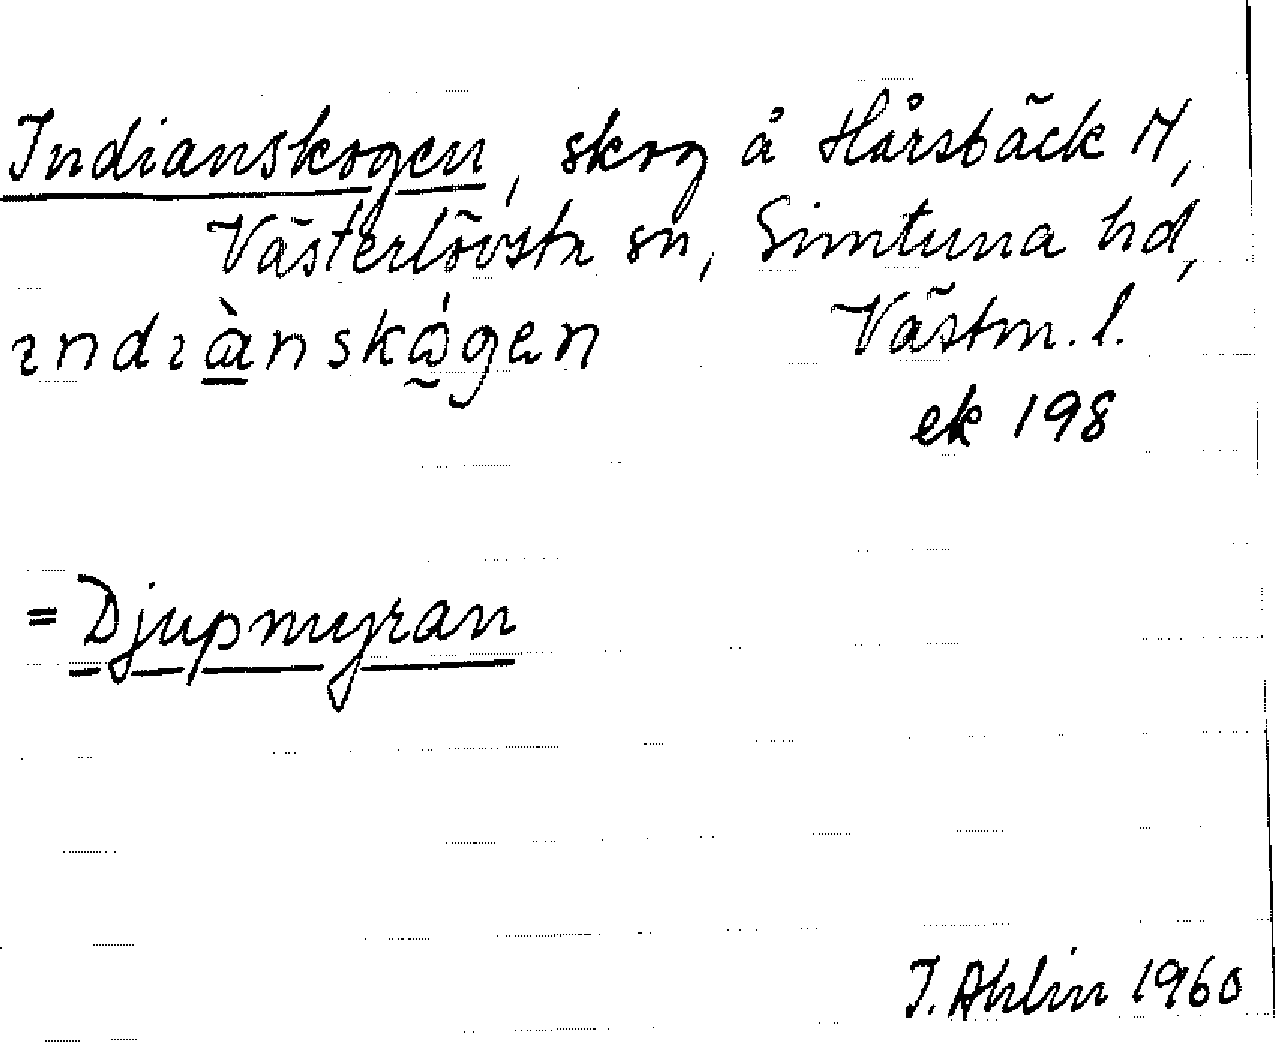 Indianskogen, skog å Hårsbäck M,
Västerlövsta sn, Simtuna hd,
ındıànskǫ́gen Västm. l.
ek 198
= Djupmyran
I. Ahlin 1960